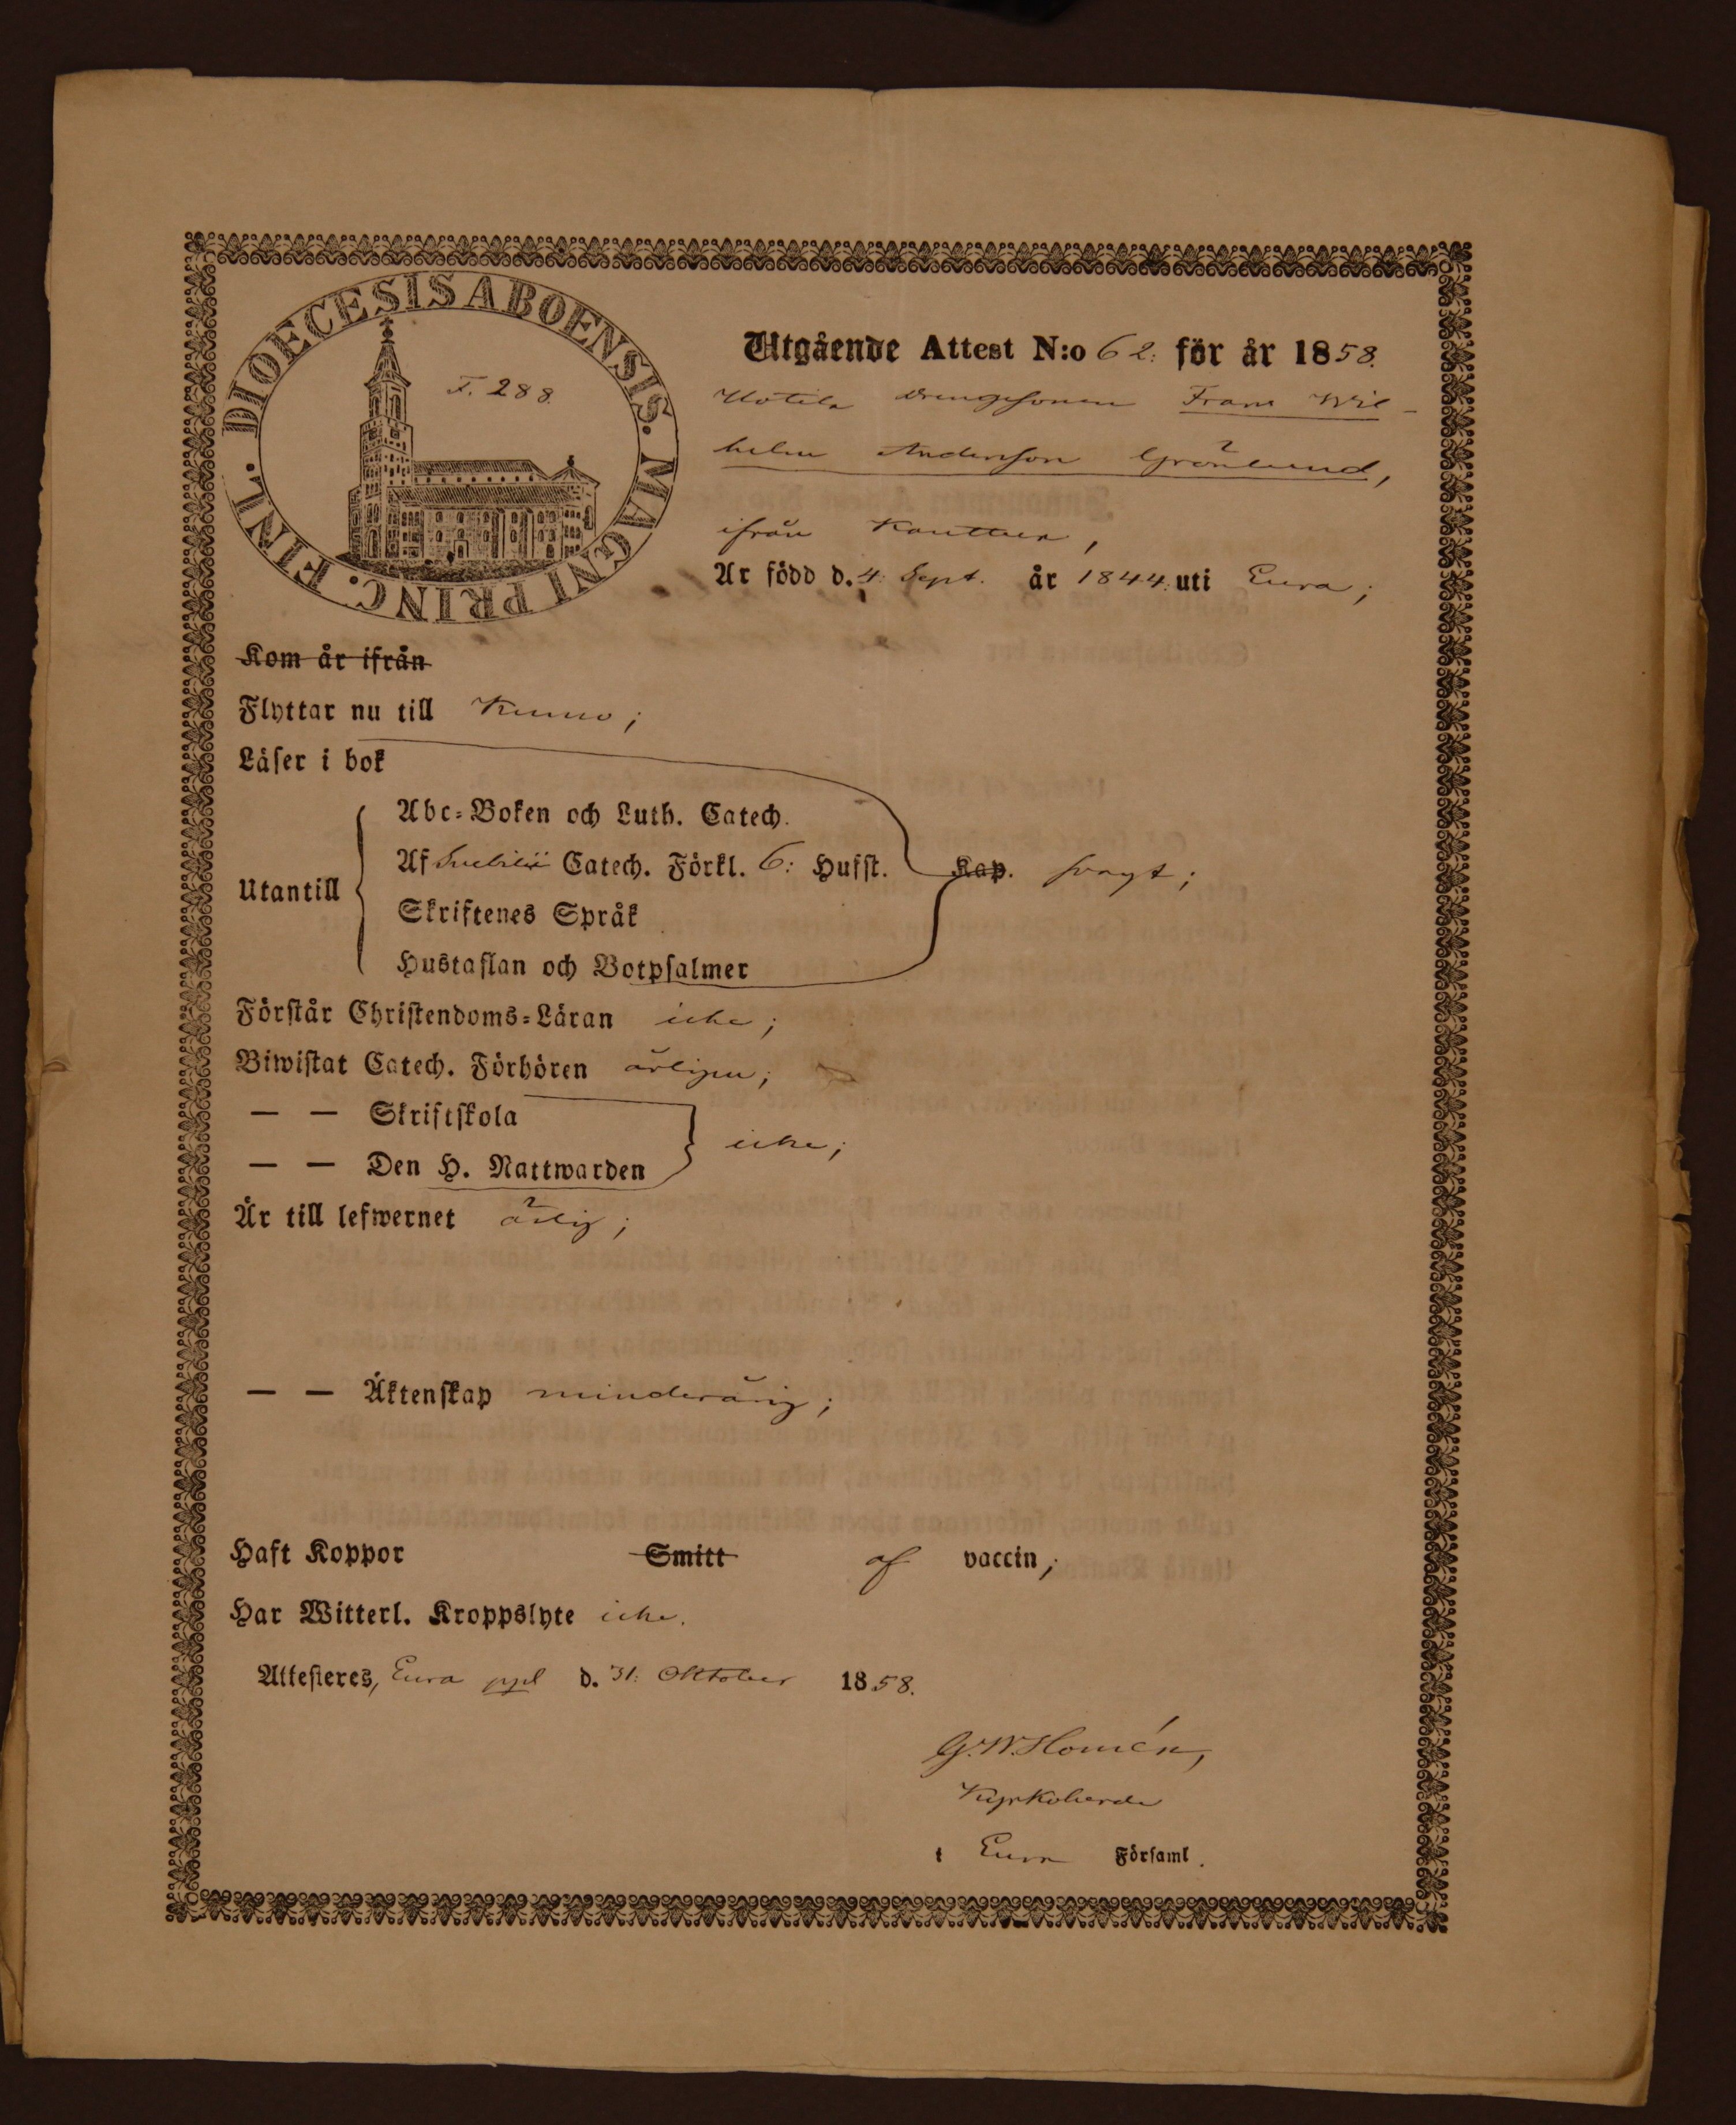 DIOECESIS ABOENSIS. MAGNI PRINC. FINL.
F. 288.
Utgående Attest N:o 62: för år 1858.
Uotila drengsonen Frans Wil-
helm Andersson Grönlund,
ifrån Kauttua,
Är född d. 4: Sept. år 1844: uti Eura;
Kom år ifrån
Flyttar nu till Kumo;
Läser i bok
Abc-Boken och Luth. Catech.
Af Svebilii Catech. Förkl. 6: Hufst. Kap. svagt;
Utantill
Skriftenes Språk
Hustaflan och Botpsalmer
Förstår Christendoms-Läran icke;
Biwistat Catech. Förhören årligen;
— — Skriftskola
icke;
— — Den H. Nattwarden
Är till lefwernet ärlig;
— — Äktenskap minderårig;
Haft Koppor Smitt af vaccin;
Har Witterl. Kroppslyte icke.
Attesteres, Eura ppl d. 31: Oktober 1858.
G. W. Homén,
Kyrkoherde
i Eura Församl.